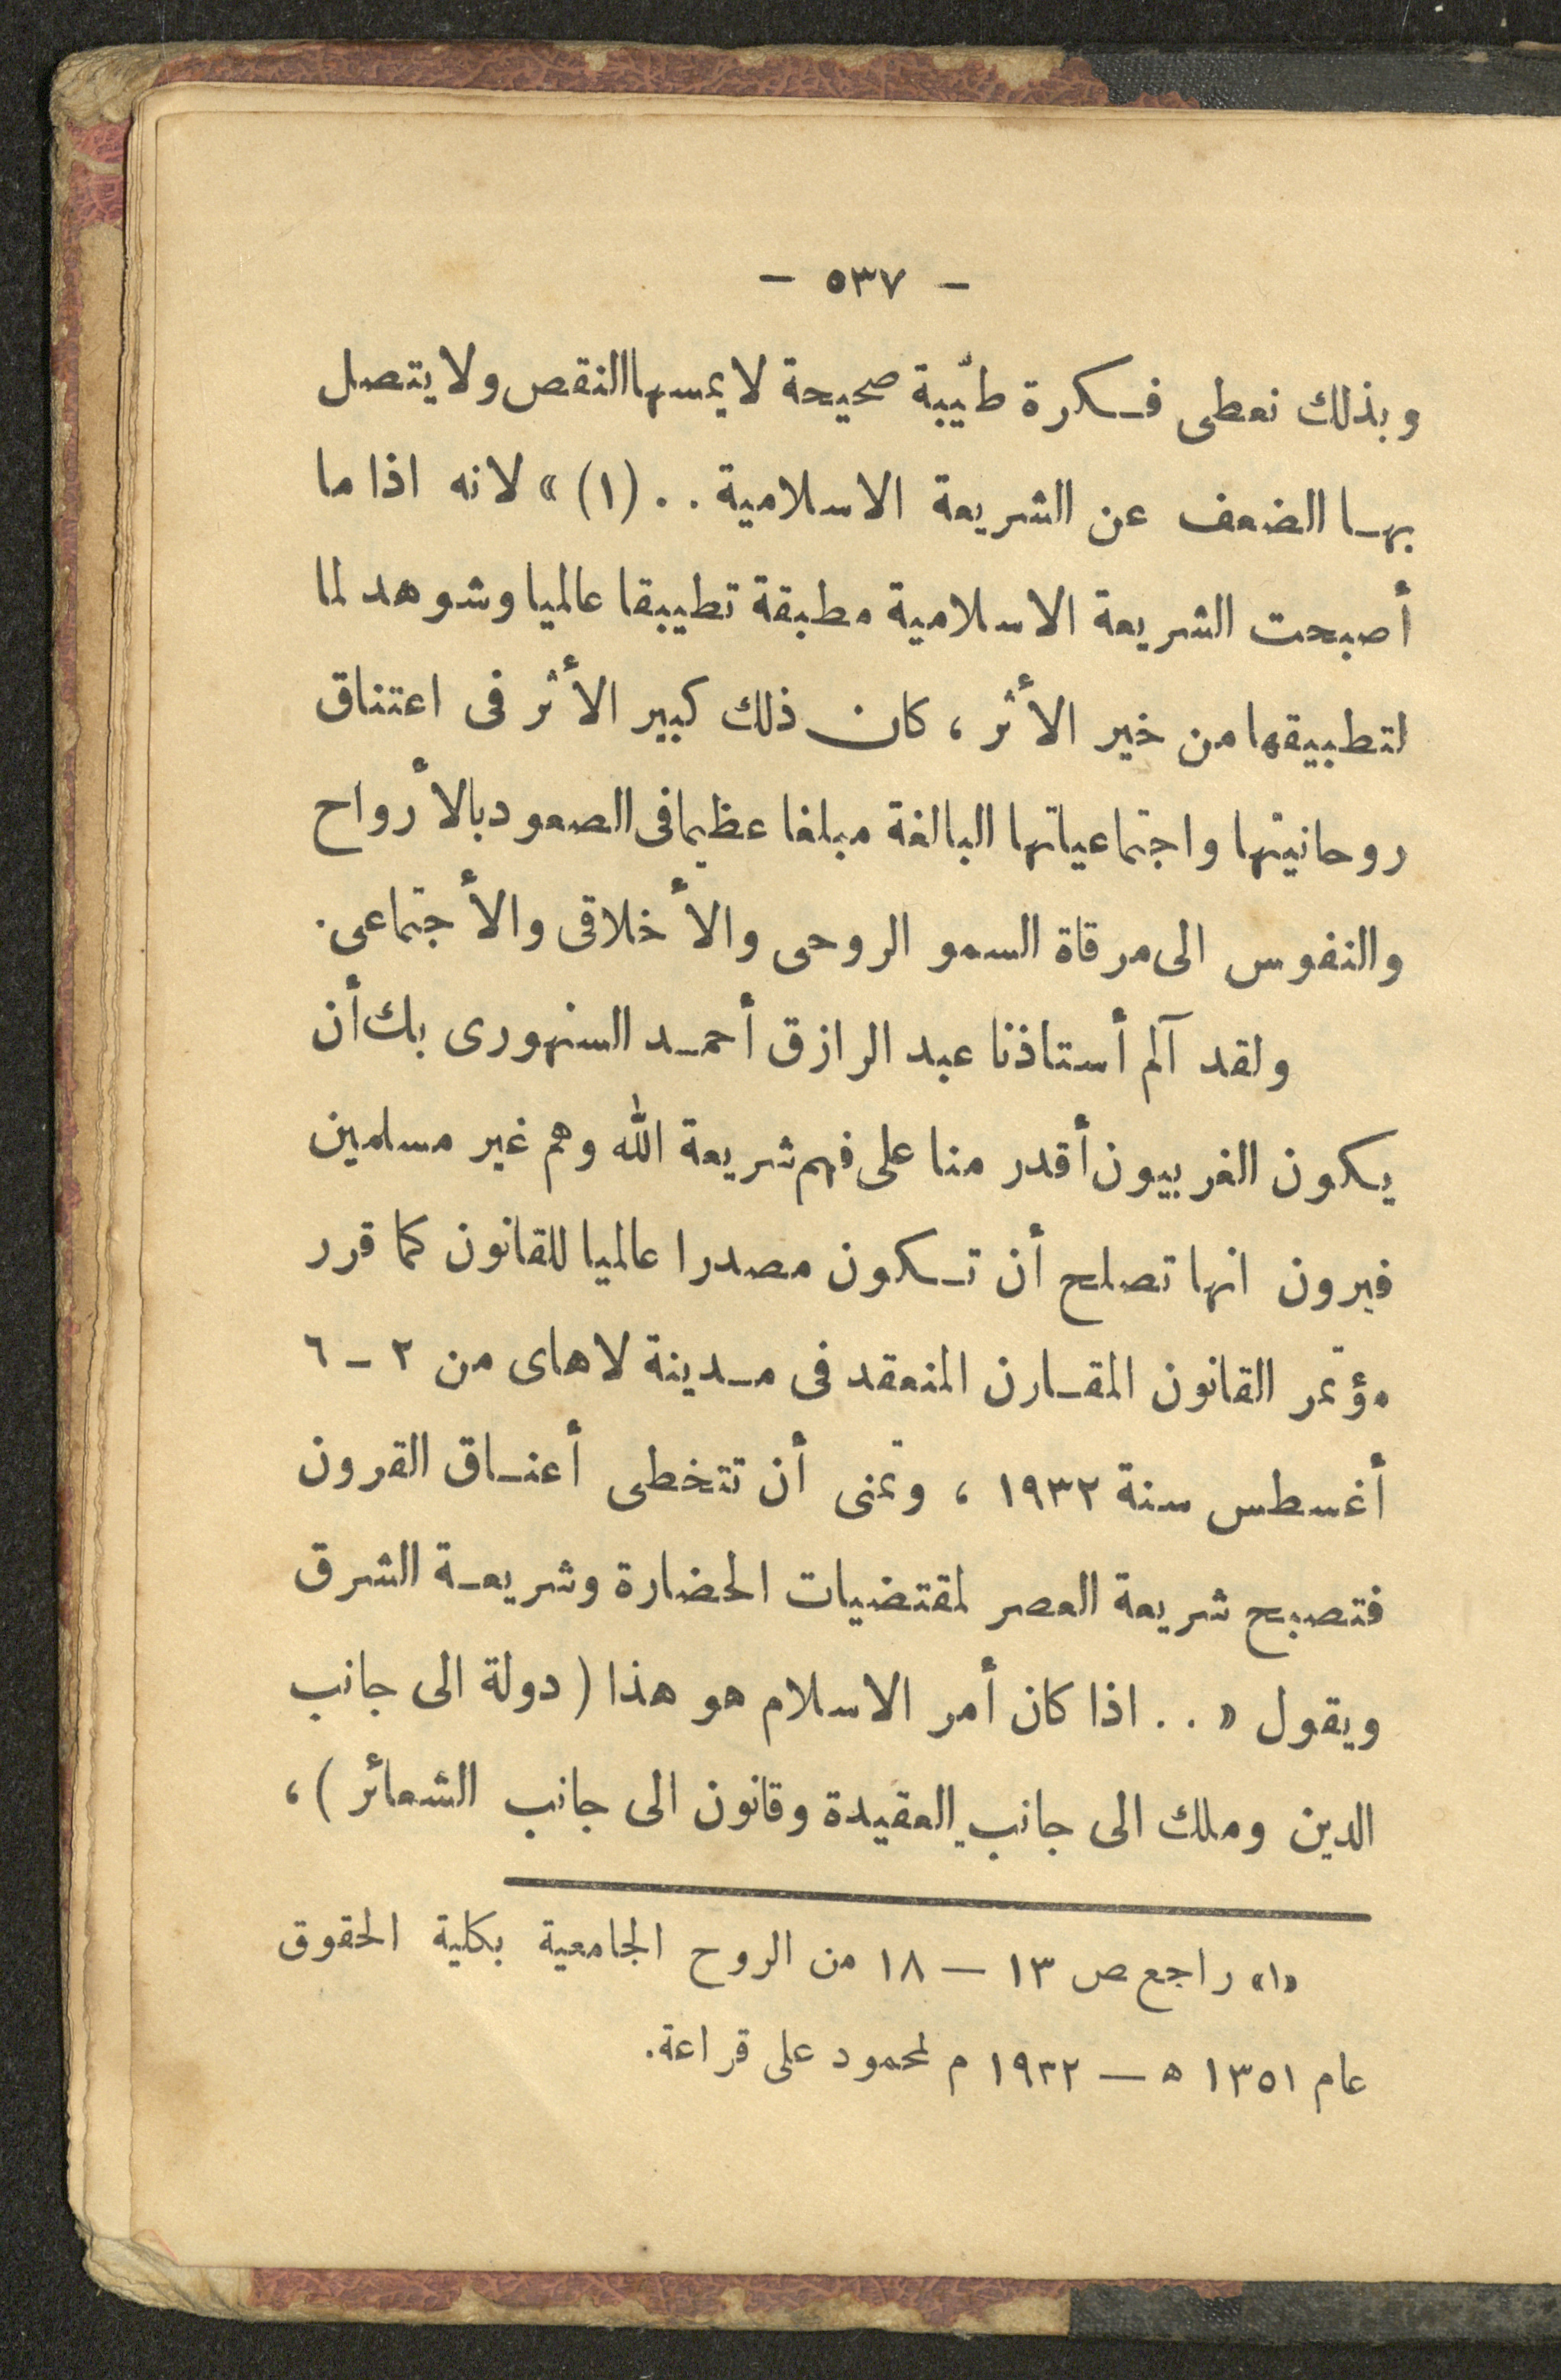 - ٥٣٧ -
وبذلك نعطى فكرة طيّبة صحيحة لايمسها النقص ولايتصل
بها الضعف عن الشريعة الاسلامية . . (١) » لانه اذا ما
أصبحت الشريعة الاسلامية مطبقة تطيبقا عالميا وشوهد لما
لتطبيقها من خير الأثر ، كان ذلك كبير الأثر فى اعتناق
روحانيتها واجتماعياتها البالغة مبلغا عظيما فى الصعود بالأرواح
والنفوس الى مرقاة السمو الروحى والأخلاقى والأجتماعى .
ولقد آلم أستاذنا عبد الرازق أحمد السنهورى بك أن
يكون الغربيون أقدر منا على فهم شريعة الله وهم غير مسلمين
فيرون انها تصلح أن تكون مصدرا عالميا للقانون كما قرر
مؤتمر القانون المقارن المنعقد فى مدينة لاهاى من ٢ - ٦
أغسطس سنة ١٩٣٢ ، وتمنى أن تتخطى أعناق القرون
فتصبح شريعة العصر لمقتضيات الحضارة وشريعة الشرق
ويقول « . . اذا كان أمر الاسلام هو هذا ( دولة الى جانب
الدين وملك الى جانب العقيدة وقانون الى جانب الشعائر ) ،
«١» راجع ص ١٣ — ١٨ من الروح الجامعية بكلية الحقوق
عام ١٣٥١ ه — ١٩٣٢ م لمحمود على قراعة .